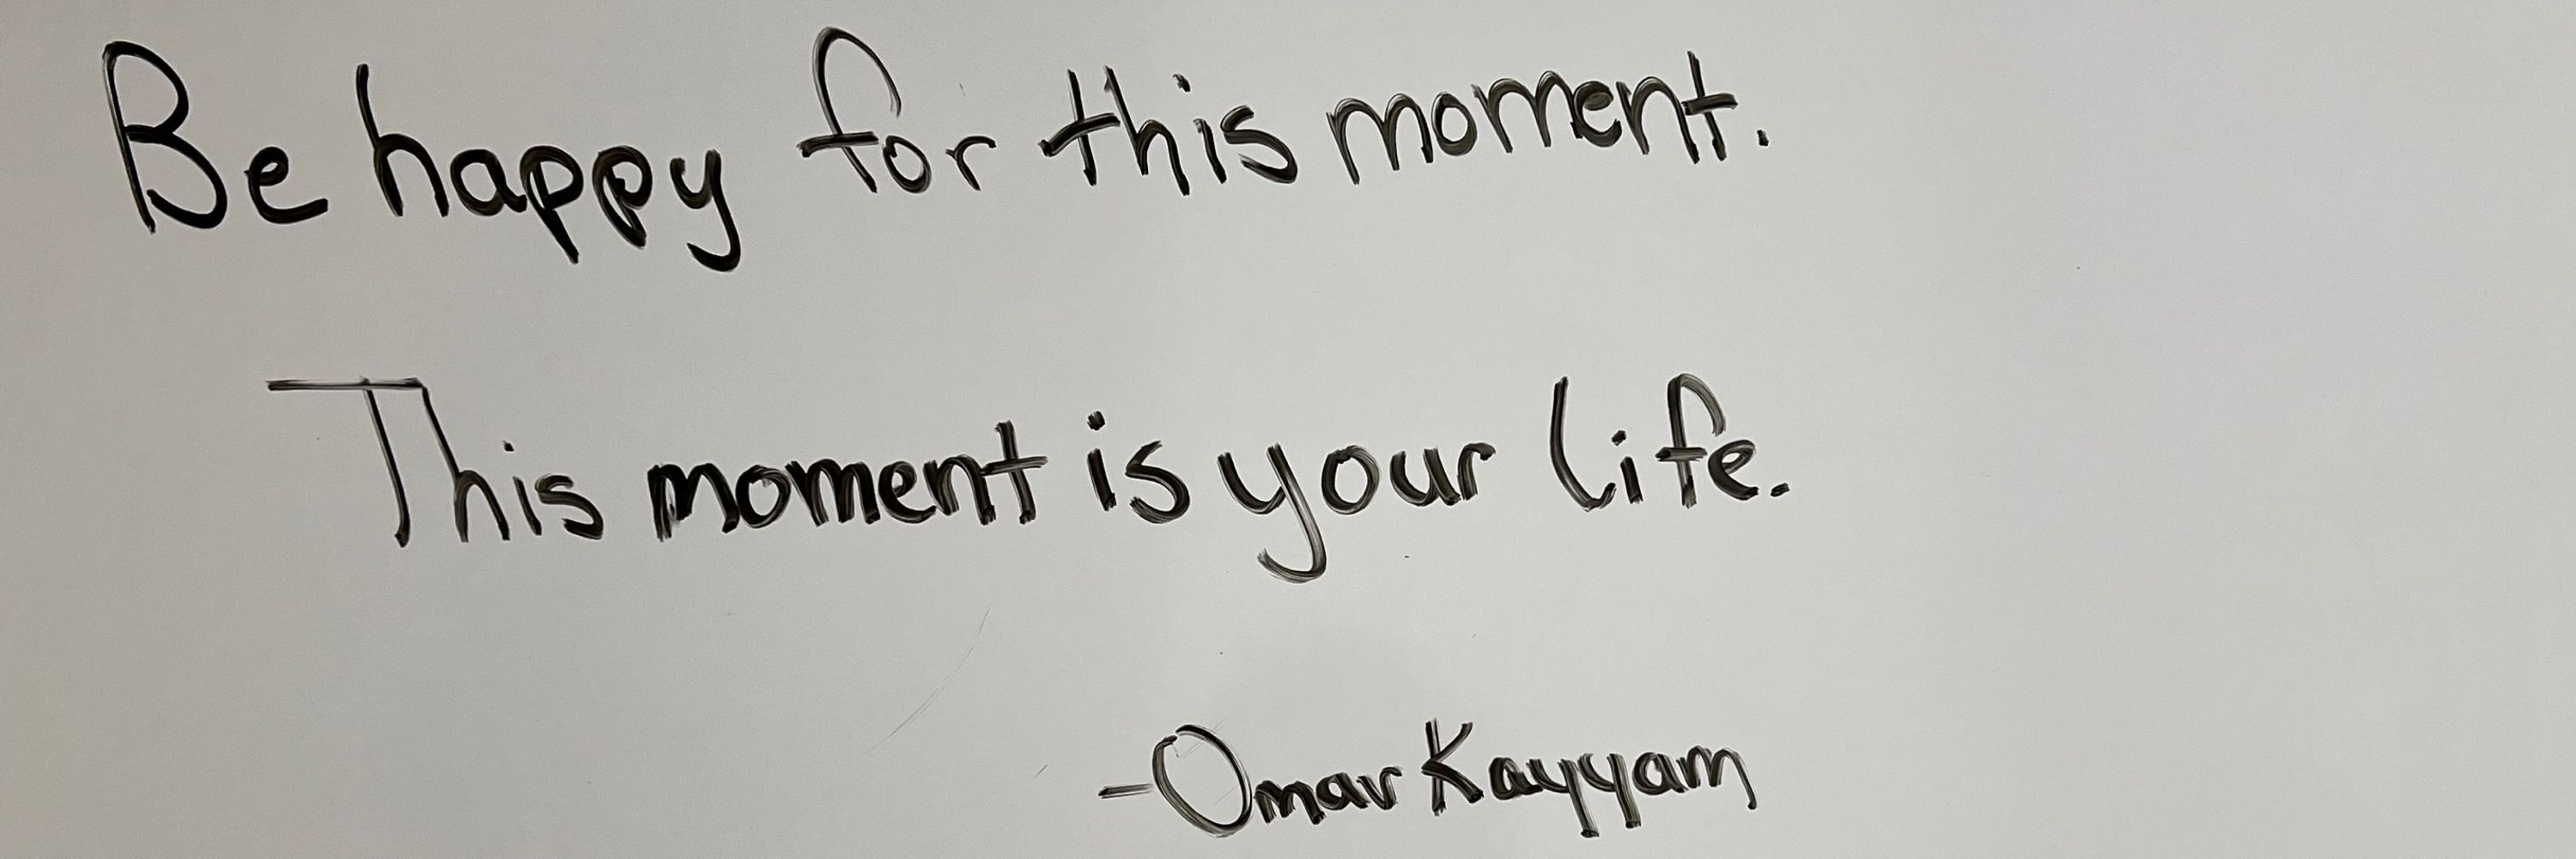 Be happy for this moment.
This moment is your life.
-Omar Kayyam